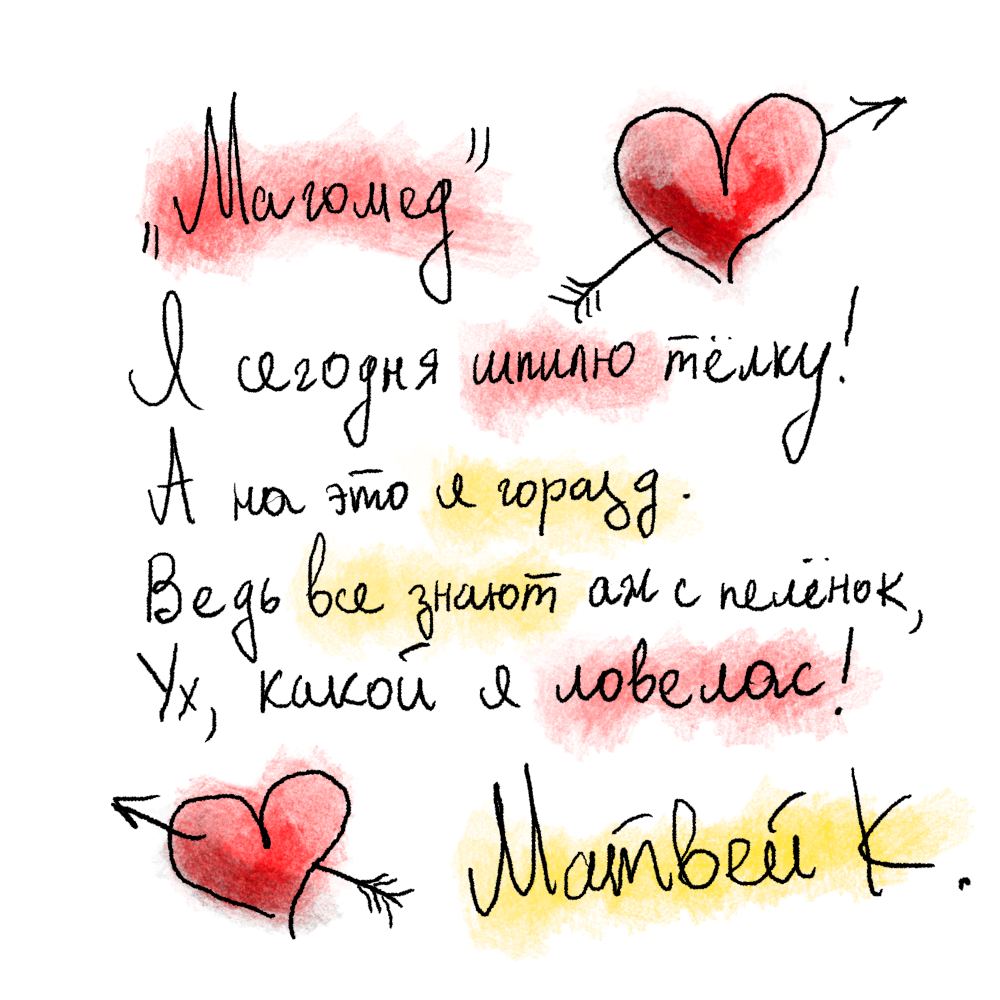 „Магомед"
Я сегодня шпилю тёлку!
А на это я горазд.
Ведь все знают аж с пелёнок,
Ух, какой я ловелас!
Матвей К.